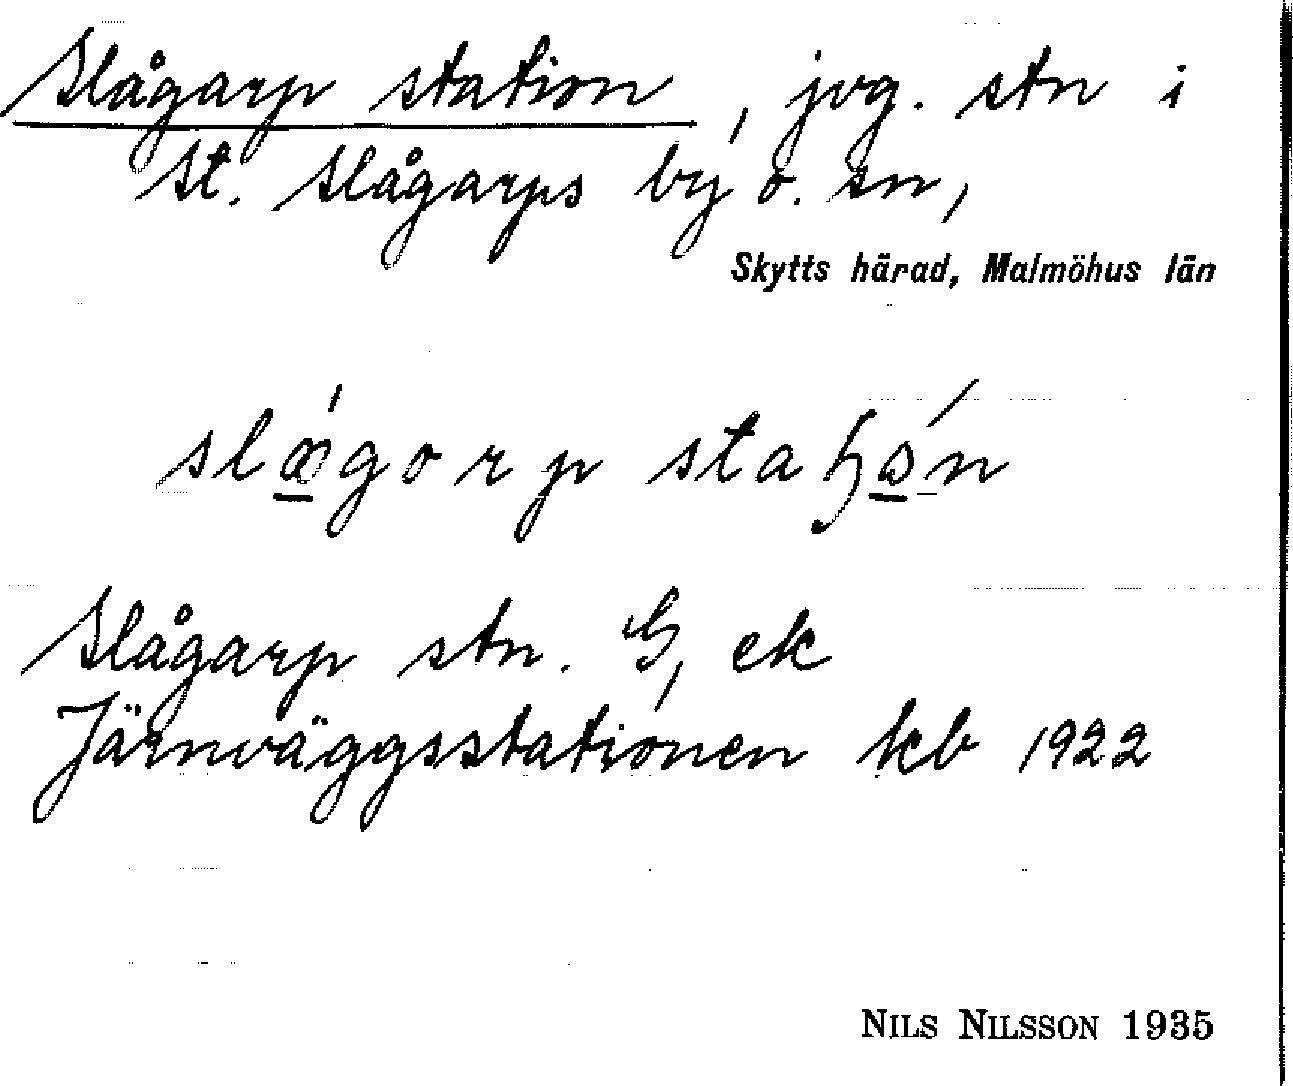 Slågarp station, jvg. stn i
St. Slågarps by o. sn,
Skytts härad, Malmöhus län
slǽgorp staɧón
Slågarp stn. G, ek
Järnväggsstationen kb 1922
NILS NILSSON 1935